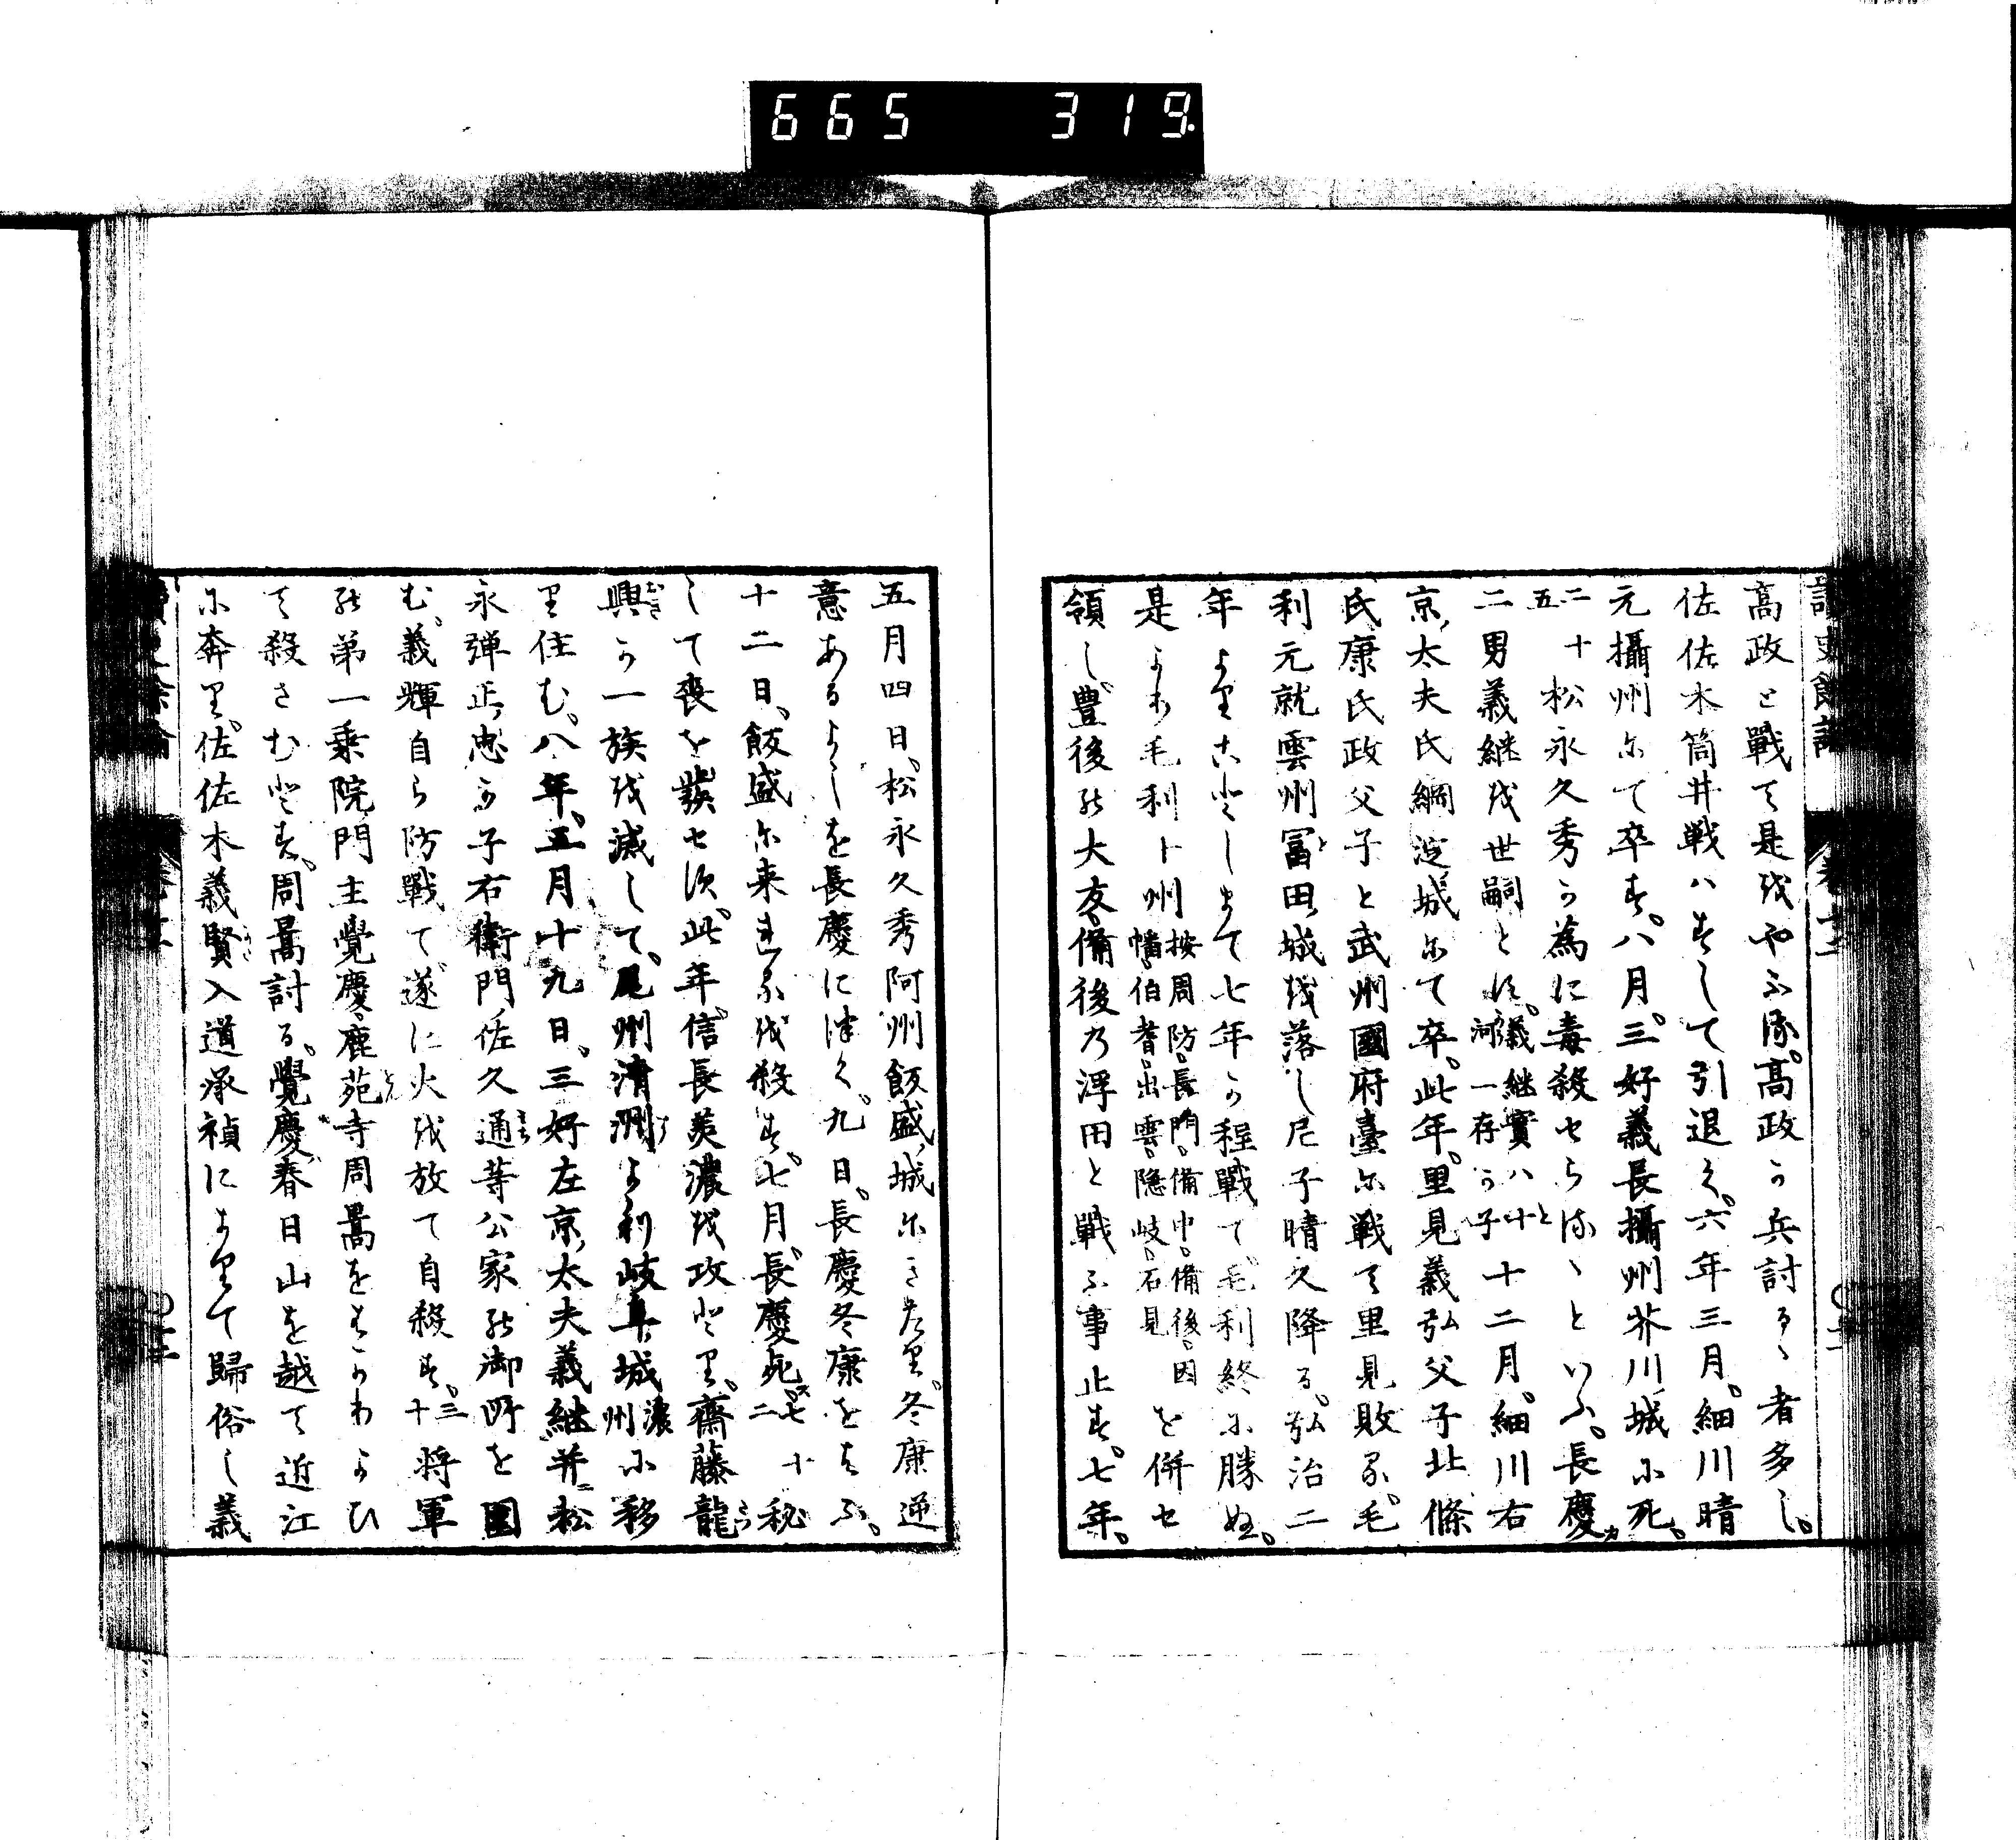 665 319
讀史餘論 巻十二
高政と戰て是をやふる。高政か兵討るゝ者多し。
佐佐木筒井戦ハすして引退く。六年三月。細川晴
元攝州にて卒す。八月。三好義長攝州芥川城に死。
二十五 松永久秀か為に毒殺せらるゝといふ。長慶
二男義継を世嗣とす。義継實ハ十河一存か子 十二月。細川右
京太夫氏綱淀城にて卒。此年。里見義弘父子北條
氏康氏政父子と武州國府臺に戦て里見敗る。毛
利元就雲州冨田城を落し尼子晴久降る。弘治二
年よりことしまて七年か程戰て。毛利終に勝ぬ。
是より毛利十州 按周防。長門。備中。備後。因幡。伯耆。出雲。隠岐。石見 を併せ
領し。豊後の大友備後の浮田と戰ふ事止す。七年。
五月四日。松永久秀阿州飯盛城にきたり。冬康逆
意あるよしを長慶に泄く。九日。長慶冬康をよふ。
十二日。飯盛に来るを殺す。七月。長慶死。四十二 秘
して喪を發せす。此年。信長美濃を攻とり。齋藤龍
興か一族を滅して。尾州清洲より岐阜城 濃州 に移
り住む。八年。五月十九日。三好左京太夫義継并松
永弾正忠か子右衛門佐久通等公家の御所を圍
む。義輝自ら防戰て遂に火を放て自殺す。三十 将軍
の弟一乗院門主覺慶鹿苑寺周暠をもうわよひ
て殺さむとす。周暠討る。覺慶春日山を越て近江
に奔り。佐佐木義賢入道承禎によりて歸俗し義